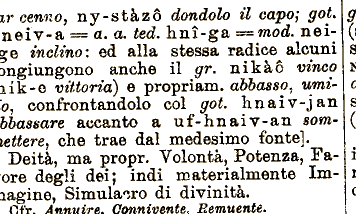 ar cenno, ny-stàzô dondolo il capo; got.
neiv-a = a. a. ted. hnî-ga = mod. nei-
ge inclino: ed alla stessa radice alcuni
ongiungono anche il gr. nikàô vinco
nik-e vittoria) e propriam. abbasso, umi-
io, confrontandolo col got. hnaiv-jan
bbassare accanto a uf-hnaiv-an som-
nettere, che trae dal medesimo fonte].
Deità, ma propr. Volontà, Potenza, Fa-
ore degli dei; indi materialmente Im-
nagine, Simulacro di divinità.
Cfr. Annuire, Connivente, Remuente.